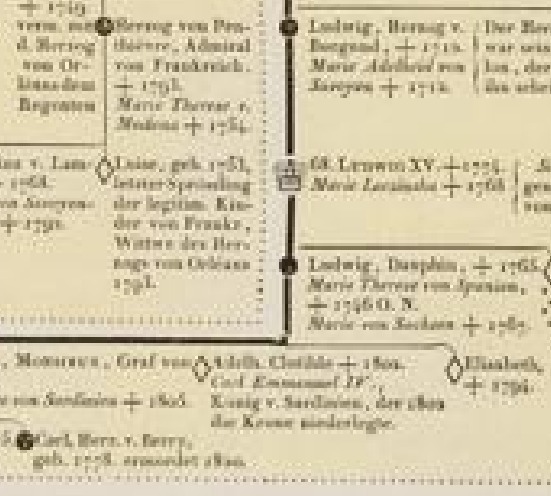 + 1749.
verm. mit
d. Herzog
von Or-
leans dem
Regenten
Herzog von Pen-
thièvre, Admiral
von Frankreich.
+ 1793.
Marie Therese v.
Modena + 1754.
Ludwig, Herzog v.
Burgund, + 1712.
Marie Adelheid von
Savoyen + 1712.
Der Her
war sein
v. Lam-
1768.
Savoyen-
+ 1792.
Luise, geb. 1753,
letzter Sprössling
der legitim. Kin-
der von Frankr.,
Wittwe des Her-
zogs von Orleans
1793.
68. Ludwig XV. + 1774.
Marie Lescinska + 1768
Ludwig, Dauphin, + 1765.
Marie Therese von Spanien,
+ 1746 O. N.
Marie von Sachsen + 1767.
, Monsieur, Graf von
von Sardinien + 1805.
Adelh. Clotilde + 1802.
Carl Emmanuel IV.,
König v. Sardinien, der 1802
die Krone niederlegte.
Elisabeth,
+ 1794.
Carl, Herz. v. Berry,
geb. 1778. ermordet 1820.